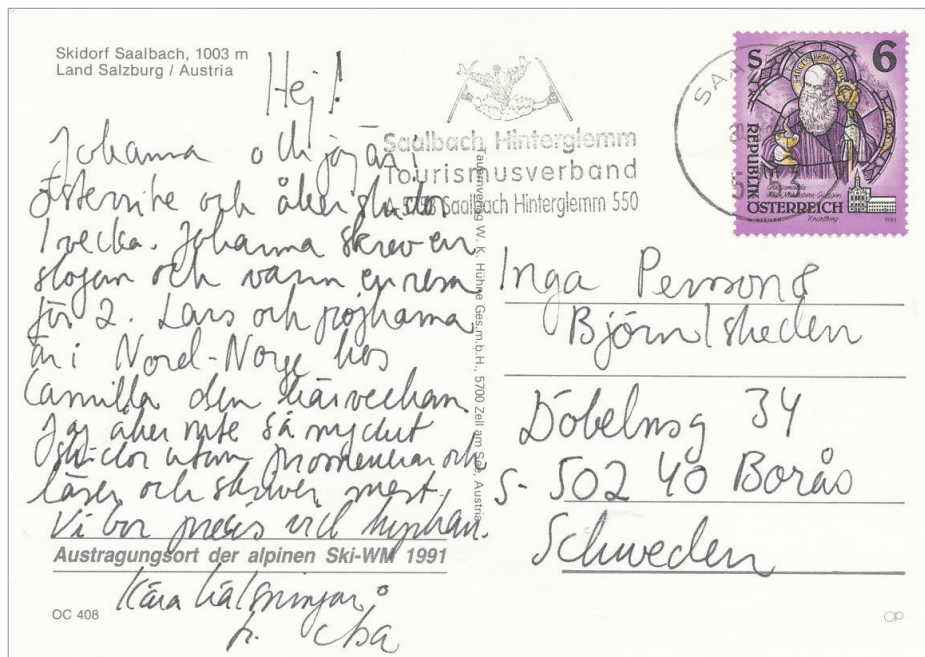 Skidorf Saalbach, 1003 m
Land Salzburg / Austria
Hej!
Johanna och jag är i
Österrike och åker skidor
1 vecka. Johanna skrev en
slogan och vann en resa
för 2. Lars och pojkarna
är i Nord-Norge hos
Camilla den här veckan.
Jag åker inte så mycket
skidor utan promenerar och
läser och skriver mest.
Vi bor precis vid
Austragungsort der alpinen Ski-WM 1991
Kära hälsningar
OC 408
Saalbach Hinterglemm
Tourismusverband
Saalbach Hinterglemm 550
W. K. Hühne Ges.m.b.H., 5700 Zell am See, Austria
S 6
REPUBLIK
ÖSTERREICH
1993
Inga Persson &
Björn
34
S-502 40 Borås
Schweden